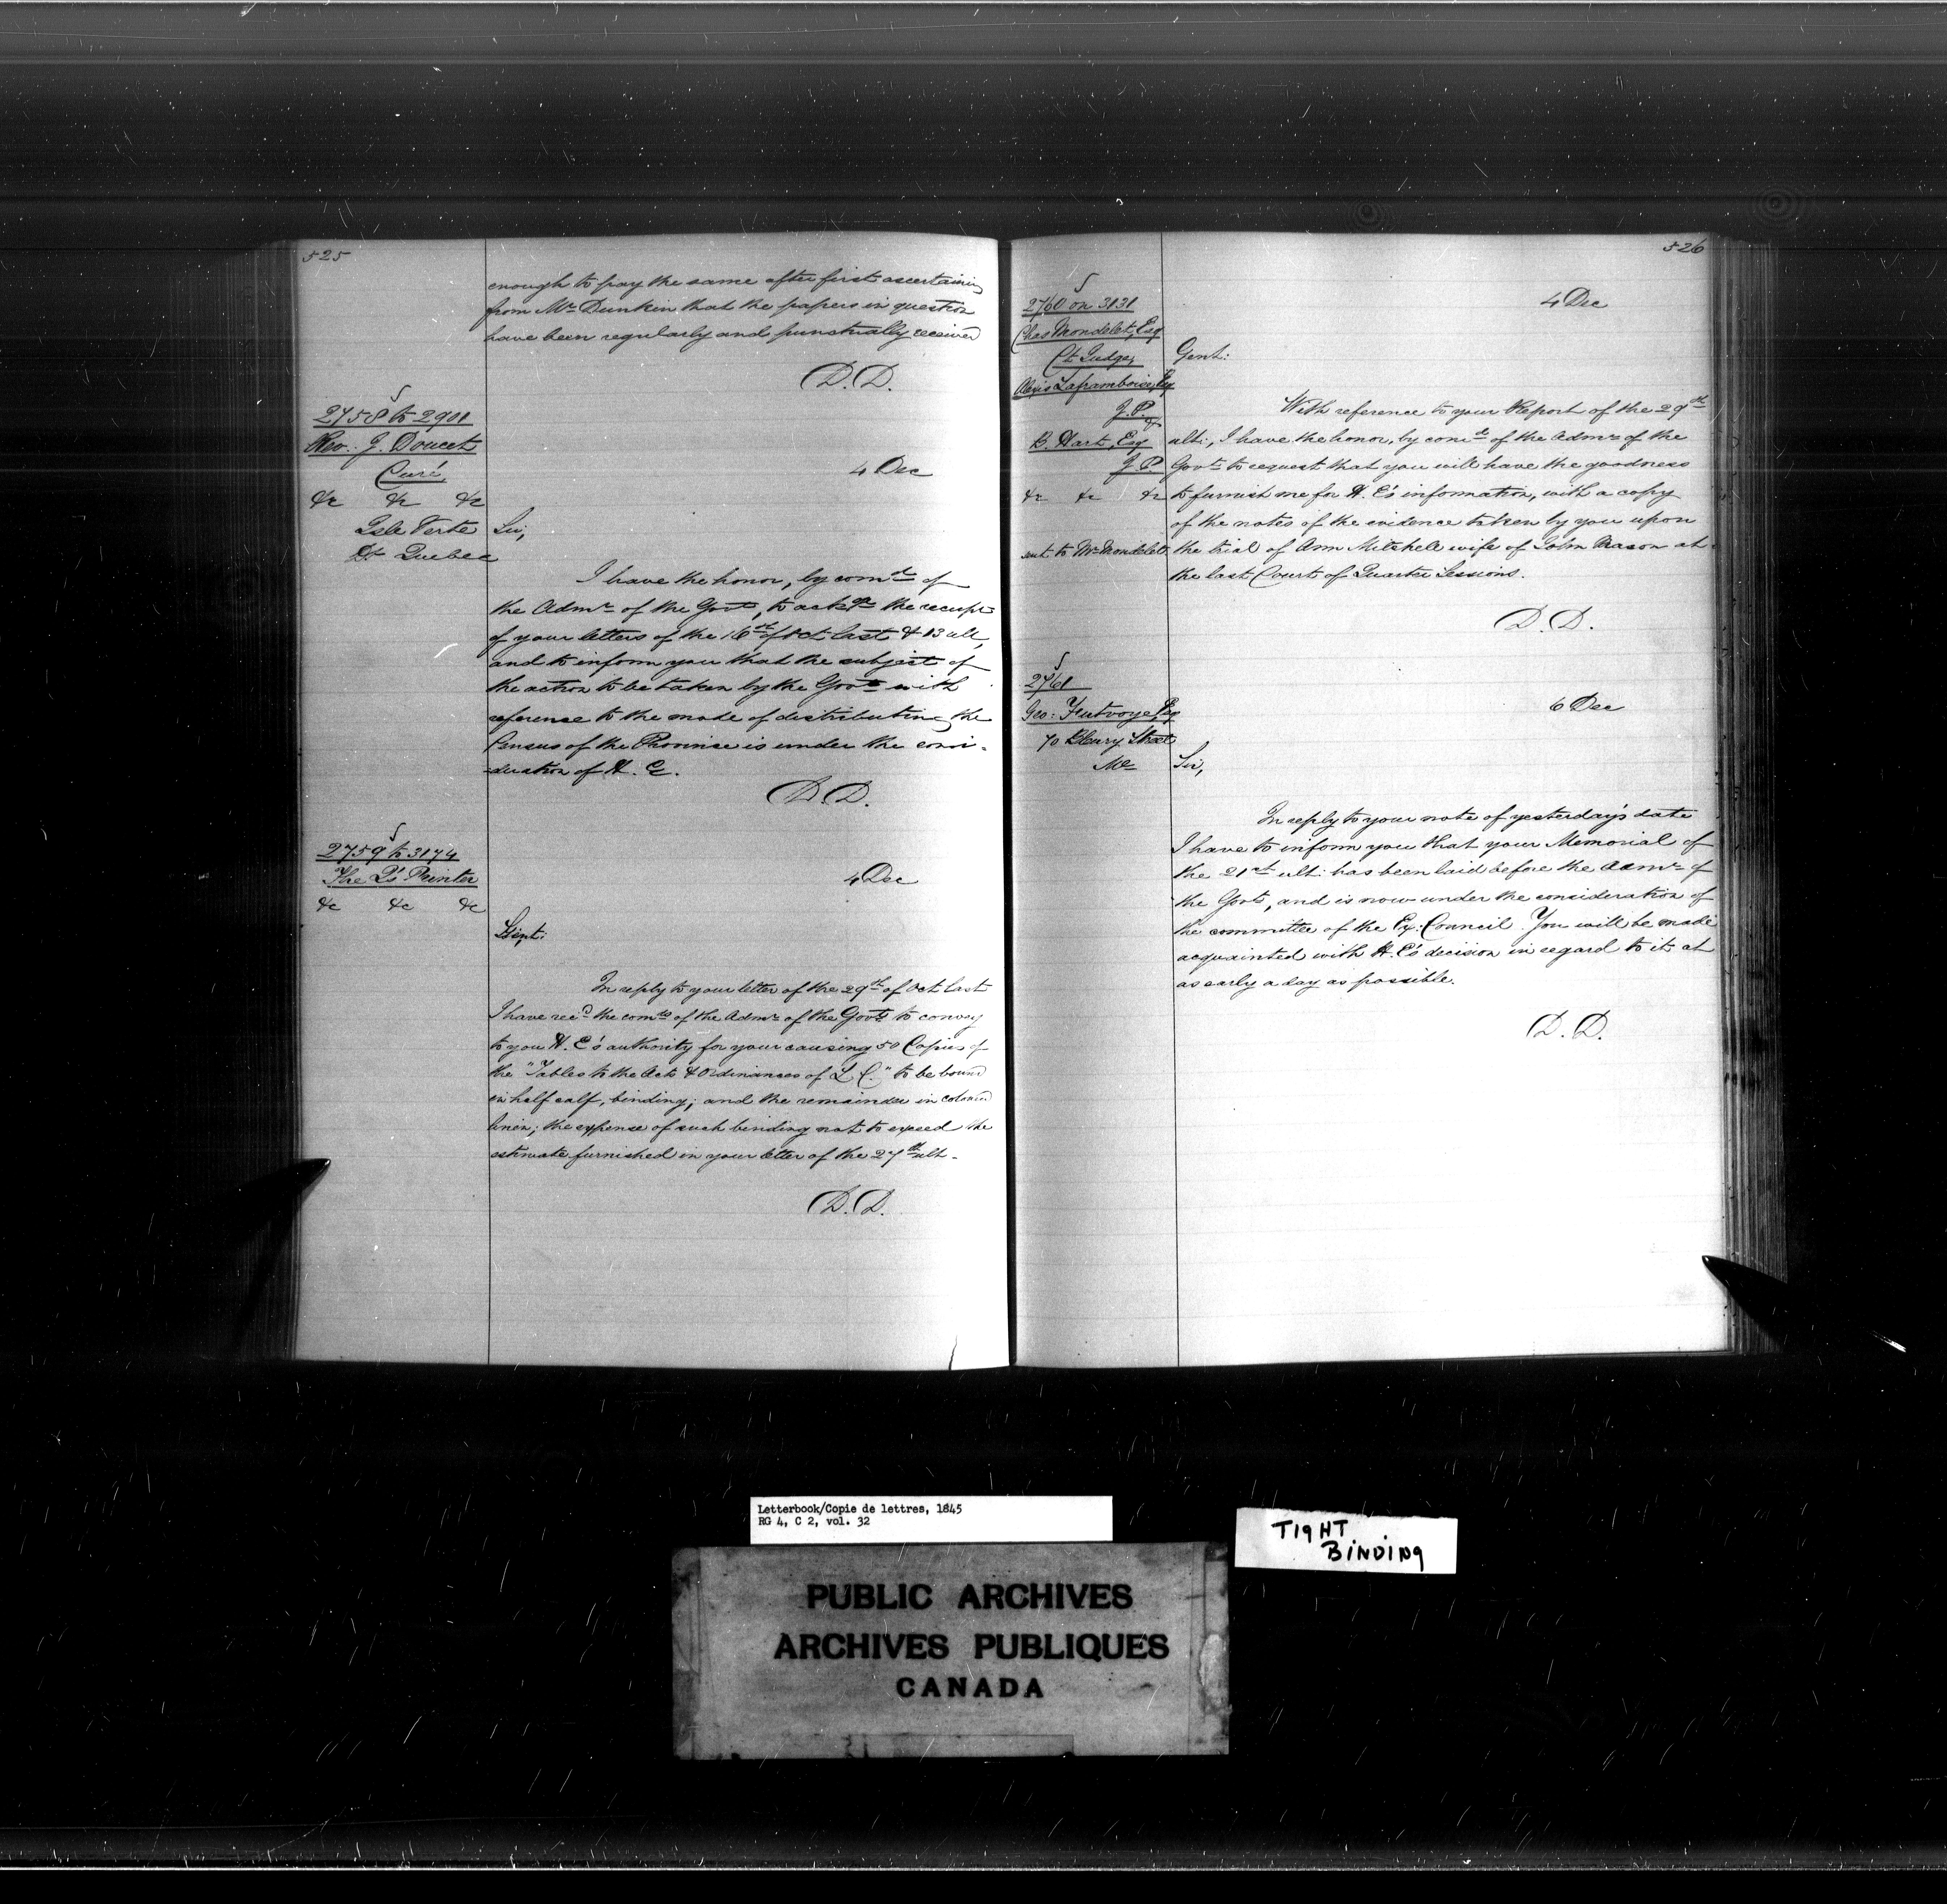 525
enough to pay the same after first ascertaining
from Mr Dunkin that the papers in question
have been regularly and punctually received
D. D.
2758 to 2901
Rev. J. Doucet
Curé,
&c &c &c
Isle Verte
Dt Quebec
4 Dec
Sir,
I have the honor, by comd of
the Admr of the Govt, to ackge the receipt
of your letters of the 16th of Oct last & 13 ult,
and to inform you that the subject of
the action to be taken by the Govt with
reference to the mode of distributing the
Census of the Province is under the consi-
-deration of H. E.
D. D.
2759 to 3174
The Q's Printer
&c &c &c
4 Dec
Gent:
In reply to your letter of the 29th of Oct last
I have recd the comds of the Admr of the Govt to convey
to you H. E's authority for your causing 50 Copies of
the "Tables to the Acts & Ordinances of L. C." to be bound
in half calf, binding; and the remainder in colored
linen; the expense of such binding not to exceed the
estimate furnished in your letter of the 27th ult-
D. D.
526
2760 on 3131
Chas Mondelet, Esq
Ct Judge,
Alexis Laframboise, Esq
J. P.
&
B. Hart, Esq
J. P.
&c &c &c
sent to Mr Mondelet
4 Dec
Gent:
With reference to your Report of the 29th
ult:, I have the honor, by comd of the Admr of the
Govt to request that you will have the goodness
to furnish me for H. E's information, with a copy
of the notes of the evidence taken by you upon
the trial of Ann Mitchell wife of John Mason at
the last Court of Quarter Sessions.
D. D.
2761
Geo: Futvoye, Esq
70 Bleury Street
Ml
6 Dec
Sir,
In reply to your note of yesterday's date
I have to inform you that your Memorial of
the 21st ult: has been laid before the Admr of
the Govt, and is now under the consideration of
the committee of the Ex: Council. You will be made
acquainted with H. E's decision in regard to it at
as early a day as possible.
D. D.
Letterbook/Copie de lettres, 1845
RG 4, C 2, vol. 32
TIGHT
BINDING
PUBLIC ARCHIVES
ARCHIVES PUBLIQUES
CANADA